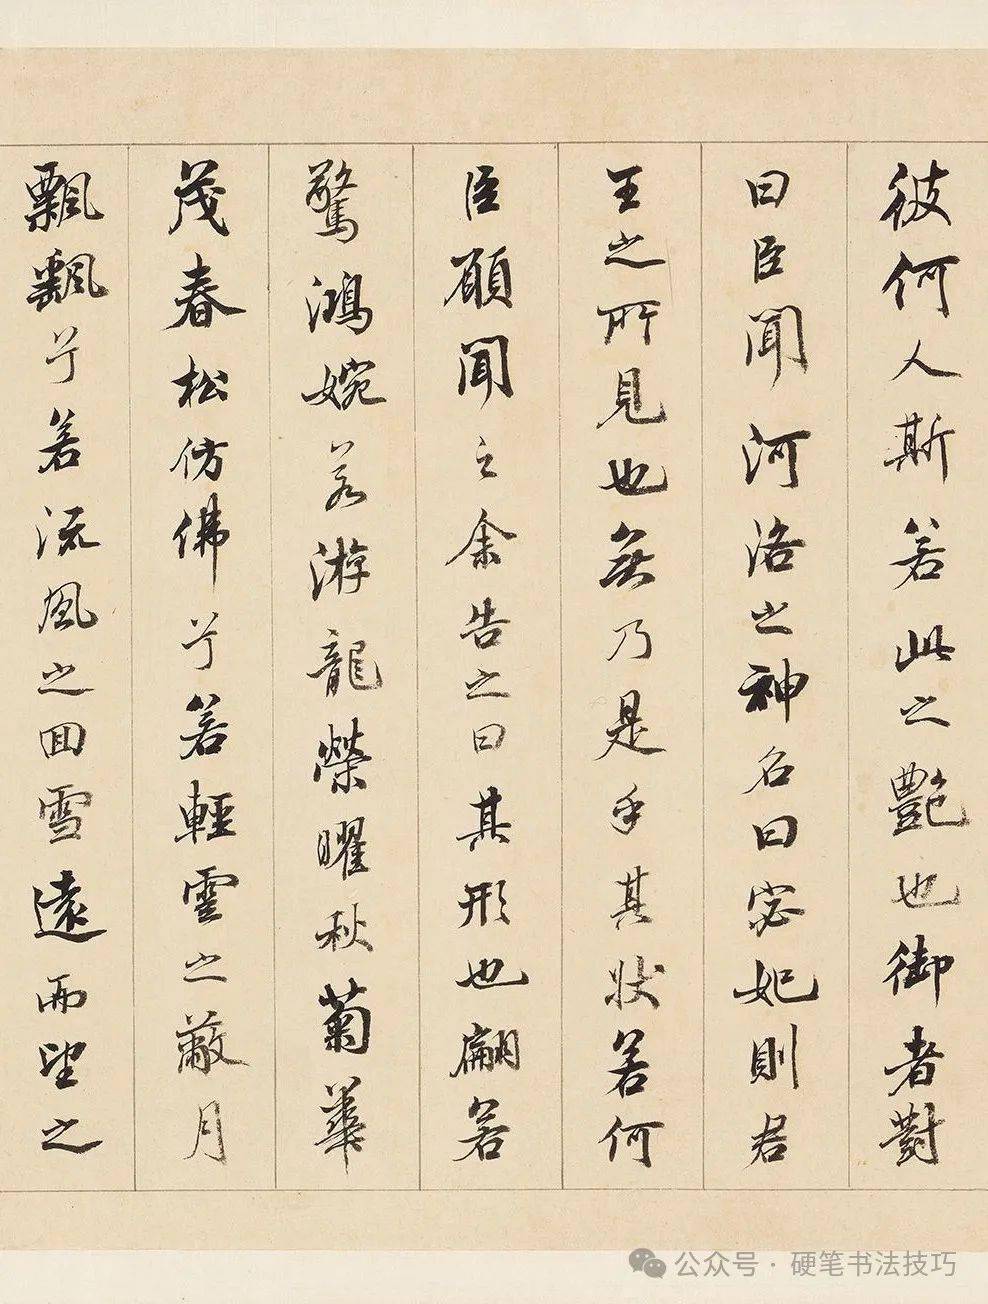 彼何人斯若此之艷也御者對
曰臣聞河洛之神名曰宓妃則君
王之所見也無乃是乎其狀若何
臣願聞之余告之曰其形也翩若
驚鴻婉若游龍榮曜秋菊華
茂春松仿佛兮若輕雲之蔽月
飄飄兮若流風之回雪遠而望之
公众号·硬笔书法技巧